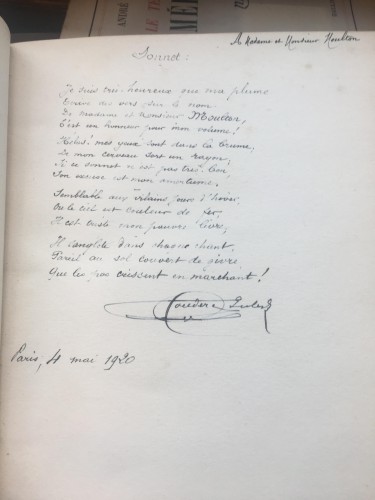 ANDRÉ
LE T
MÉ
A Madame et Monsieur Moulton
Sonnet :
Je suis très heureux que ma plume
Encre des vers sur le nom
De madame et monsieur Moulton,
C'est un honneur pour mon volume !
Hélas ! mes yeux sont dans la brume,
De mon cerveau sort un rayon,
Si ce sonnet n'est pas très bon,
Son est mon amertume.
Semblable aux vilains jours d'hiver,
Où le ciel est couleur de fer,
Il est triste mon pauvre livre,
Il sanglote dans chaque chant,
Pareil au sol couvert de givre
Que les pas crissent en marchant !
Couderc
Paris, 4 mai 1920